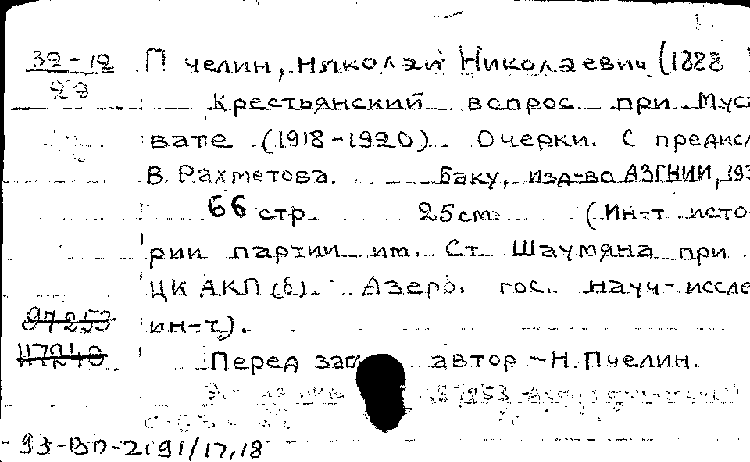 32-12 Пчелин, Николай Николаевич (1888
29
Крестьянский вопрос при Мус
вате (1918-1920). Очерки. С предисл
В. Рахметова. Баку, изд-во АЗГНИИ, 193
66 стр. 25 см. (Ин-т исто
рии партии им. Ст. Шаумяна при
ЦК АКП(б). Азерб. гос. науч.-иссле
97253 ин-т).
117240
Перед загл автор - Н. Пчелин.
93-ВП-2191/17,18